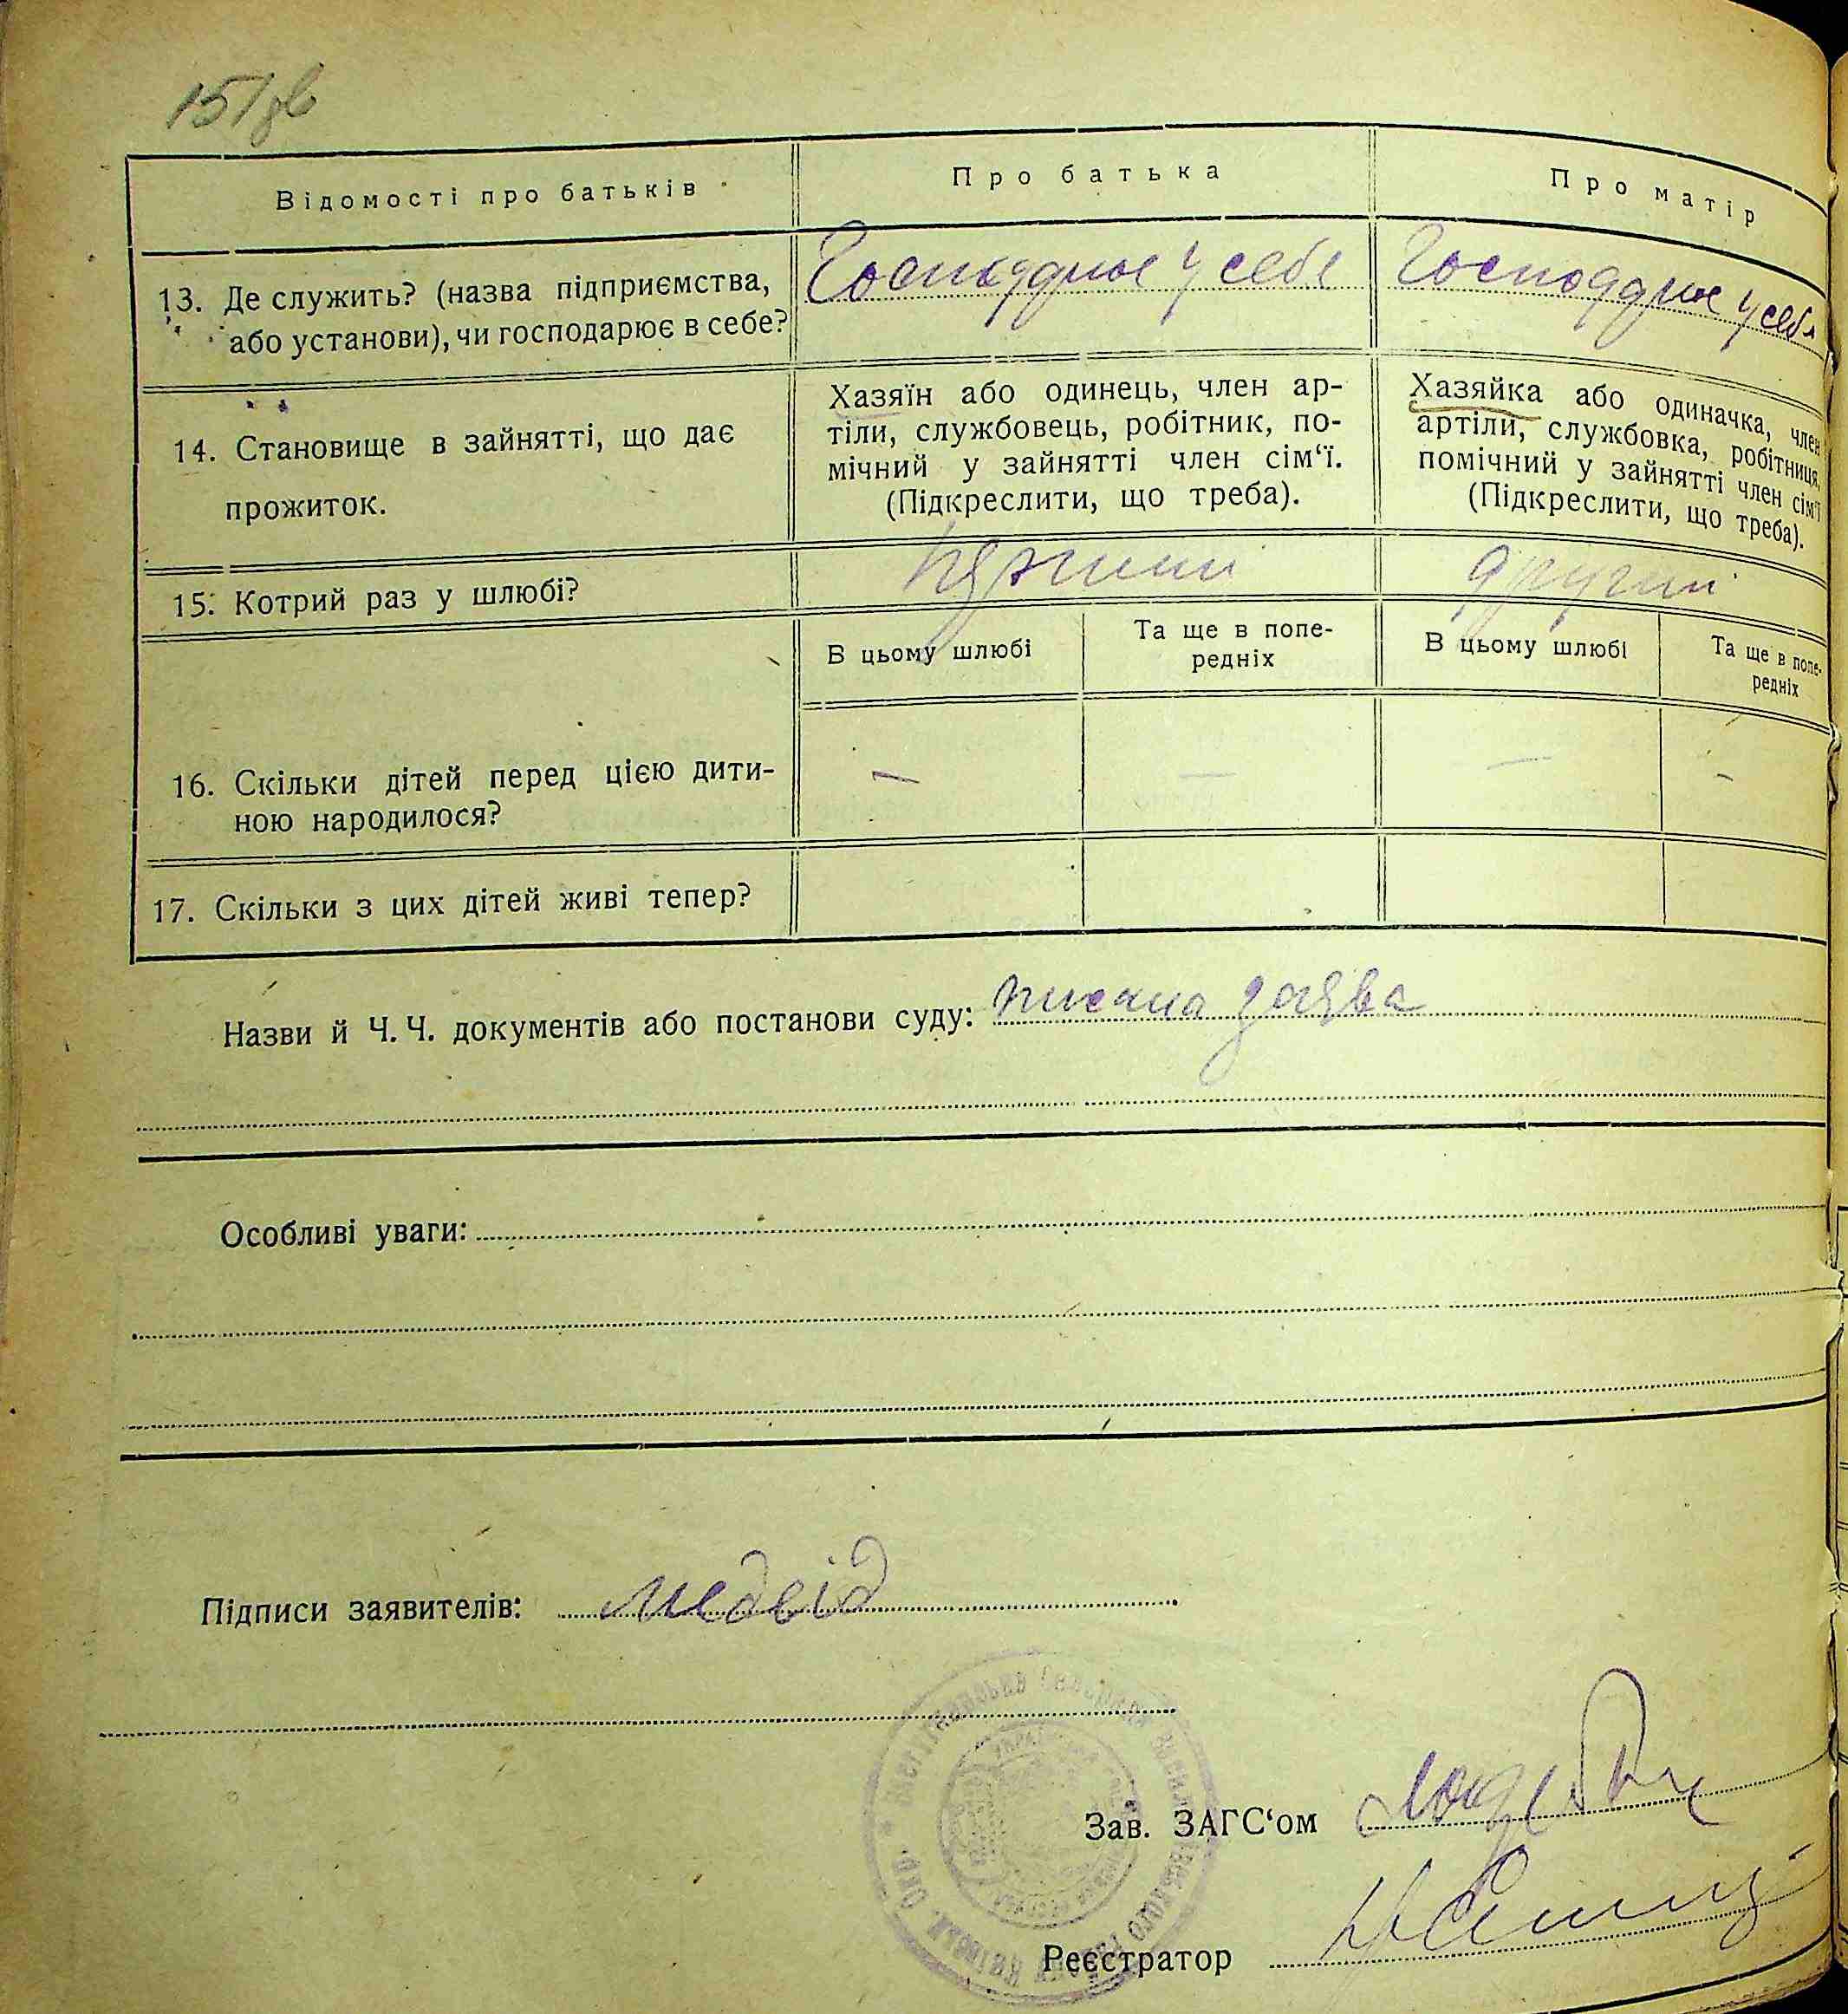 151 зв
Відомості про батьків
Про батька
Про матір
13. Де служить? (назва підприємства,
або установи), чи господарює в себе?
Господарює у себе
Господарює у себе
14. Становище в зайнятті, що дає
прожиток.
Хазяїн або одинець, член ар-
тіли, службовець, робітник, по-
мічний у зайнятті член сім‘ї.
(Підкреслити, що треба).
Хазяйка або одиначка, член
артіли, службовка, робітниця,
помічний у зайнятті член сім‘ї
(Підкреслити, що треба).
15. Котрий раз у шлюбі?
другий
В цьому шлюбі
Та ще в попе-
редніх
В цьому шлюбі
Та ще в попе-
редніх
16. Скільки дітей перед цією дити-
ною народилося?
— — — -
17. Скільки з цих дітей живі тепер?
Назви й Ч. Ч. документів або постанови суду: заява
Особливі уваги:
Підписи заявителів: Медвід
Зав. ЗАГС‘ом
Реєстратор